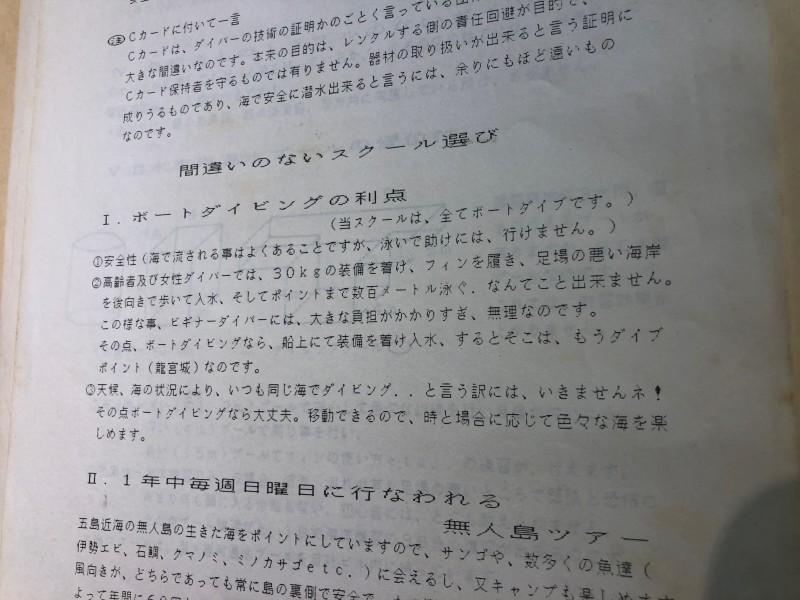 ㊟Cカードに付いて一言
Cカードは、ダイバーの技術の証明かのごとく言っている
大きな間違いなのです。本来の目的は、レンタルする側の責任回避が目的で、
Cカード保持者を守るものでは有りません。器材の取り扱いが出来ると言う証明に
成りうるものであり、海で安全に潜水出来ると言うには、余りにもほど遠いもの
なのです。
間違いのないスクール選び
Ⅰ．ボートダイビングの利点
（当スクールは、全てボートダイブです。）
①安全性（海で流される事はよくあることですが、泳いで助けには、行けません。）
②高齢者及び女性ダイバーでは、３０ｋｇの装備を着け、フィンを履き、足場の悪い海岸
を後向きで歩いて入水、そしてポイントまで数百メートル泳ぐ．なんてこと出来ません。
この様な事、ビギナーダイバーには、大きな負担がかかりすぎ、無理なのです。
その点、ボートダイビングなら、船上にて装備を着け入水、するとそこは、もうダイブ
ポイント（龍宮城）なのです。
③天候、海の状況により、いつも同じ海でダイビング．．と言う訳には、いきませんネ！
その点ボートダイビングなら大丈夫。移動できるので、時と場合に応じて色々な海を楽
しめます。
Ⅱ．１年中毎週日曜日に行なわれる
無人島ツアー
五島近海の無人島の生きた海をポイントにしていますので、サンゴや、数多くの魚達（
伊勢エビ、石鯛、クマノミ、ミノカサゴｅｔｃ．）に会えるし、又キャンプも楽しめます
風向きが、どちらであっても常に島の裏側で安全で
よって年間に６０